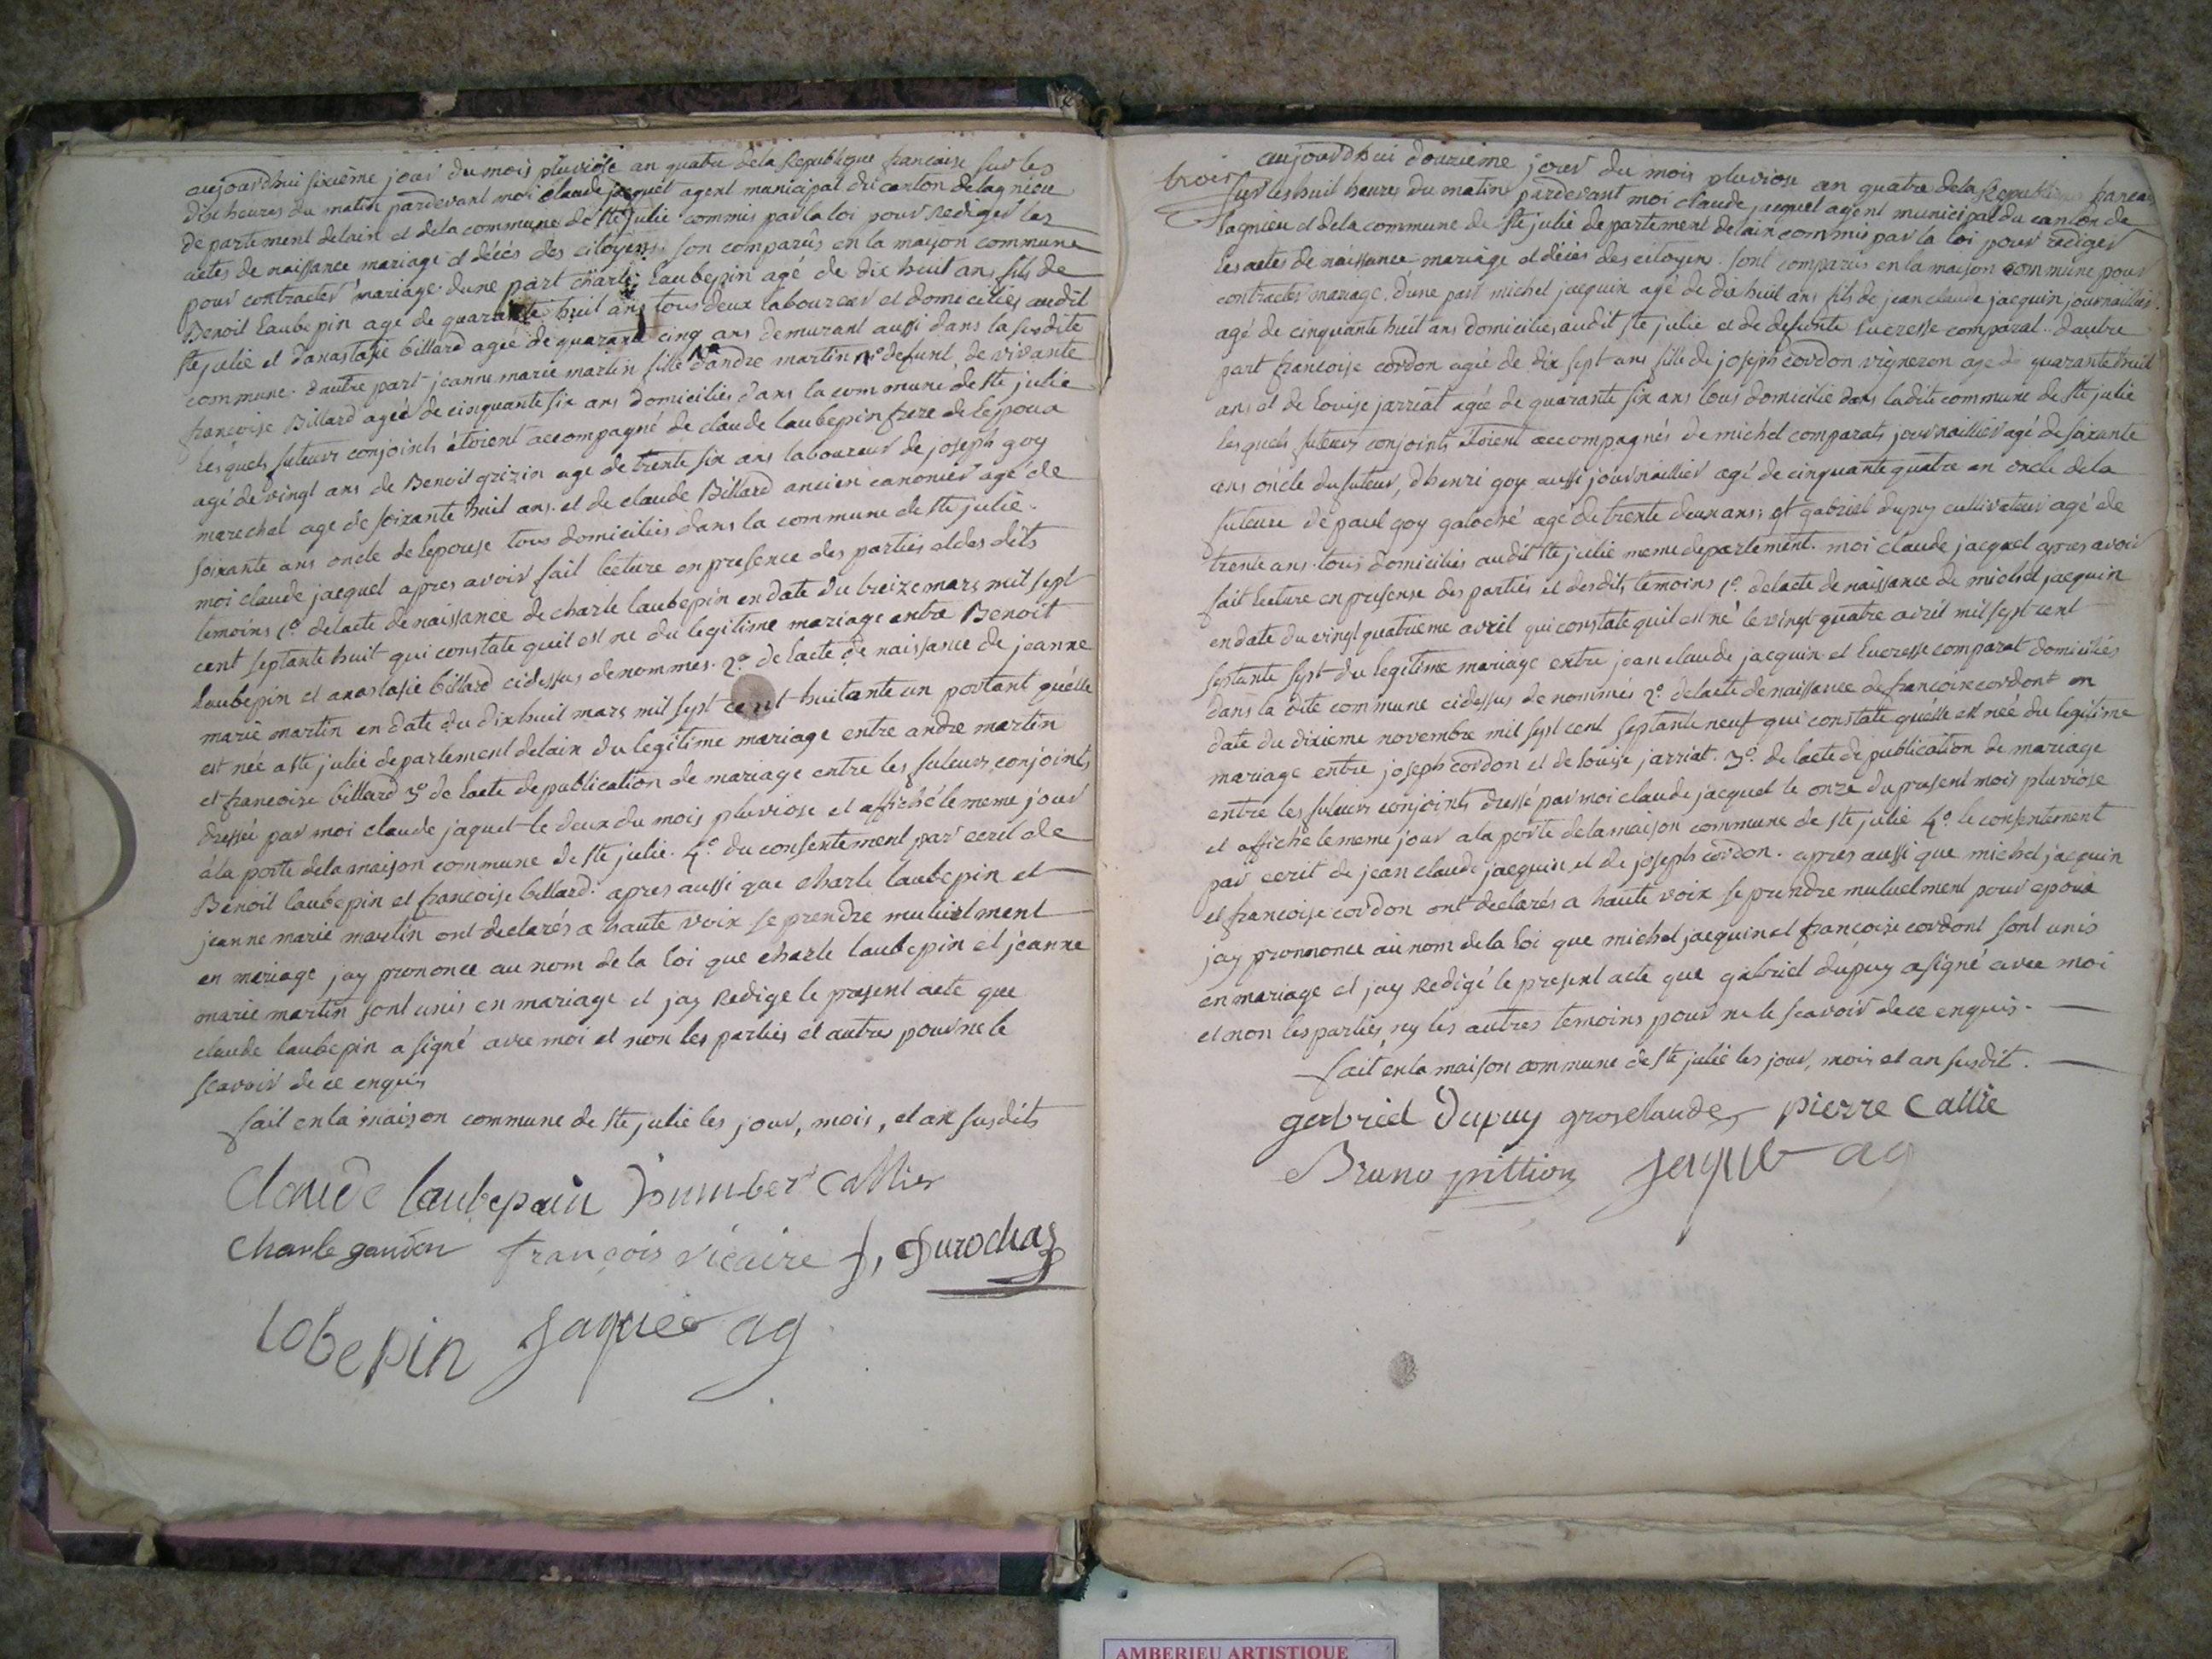 aujourdhui sixième jour du mois pluviose an quatre de la Republique francaise sur les
dix heures du matin pardevant moi claude jacquet agent municipal du canton de lagnieu
departement delain et dela commune de Ste julie commis par la loi pour rediger les
actes de naissance mariage et décés des citoyens. son comparûs en la maison commune
pour contracter mariage. dune part charle laubepin agé de dix huit ans fils de
Benoit laubepin agé de quarante huit ans tous deux laboureur et domiciliés audit
Ste julie et danastasie billard agée de quarante cinq ans demurant aussi dans la susdite
commune. dautre part jeanne marie martin fille dandré martin defunt, de vivante
francoise Billard agée de cinquante six ans domiciliés dans la commune de Ste julie
lesquels futeurs conjoints étoient accompagné de claude laubepin frere de lepoux
agé de vingt ans de Benoit grizin age de trente six ans laboureur de joseph goy
marechel age de soixante huit ans. et de claude Billard ancien canonier agé de
soixante ans oncle de lepouse tous domiciliés dans la commune de Ste julie.
moi claude jacquet apres avoir fait lecture en presence des parties et des dits
temoins 1o. delacte de naissance de charle laubepin en date du treize mars mil sept
cent septante huit qui constate quil est ne du legitime mariage entre Benoit
laubepin et anastasie billard cidessus denommés. 2o. de lacte de naissance de jeanne
marie martin en date du dix huit mars mil sept cent huitante un portant quelle
est née a Ste julie departement delain du legitime mariage entre andre martin
et francoise billard 3o de lacte de publication de mariage entre les futeurs conjoints
dressée par moi claude jaquet le deux du mois pluviose et affiché le meme jour
á la porte dela maison commune de Ste julie. 4o. du consentement par ecrit de
Benoit laubepin et francoise billard. apres aussi que charle laubepin et
jeanne marie martin ont declarés a haute voix se prendre mutuelment
en mariage jay prononce au nom de la loi que charle laubepin et jeanne
marie martin sont unis en mariage et jay redige le present acte que
claude laubepin a signé avec moi et non les parties et autres pour ne le
scavoir de ce enquis
fait en la maison commune de Ste julie les jour, mois, et an susdits
Claude laubepain humbert Callier
Charle gandon françois vicaire f, Durochas
lobepin jaquet ag
trois
aujourdhui douzieme jour du mois pluviose an quatre dela Republique francais
sur les huit heures du matin pardevant moi claude jacquet agent municipal du canton de
lagnieu et dela commune de Ste julie departement delain commis par la loi pour rediger
les actes de naissance mariage et décés des citoyens. sont comparus en la maison commune pour
contracter mariage. dune part michel jacquin agé de dix huit ans fils de jean claude jacquin journaillier.
agé de cinquante huit ans domiciliés audit Ste julie et de defunte lucresse comparat. dautre
part francoise cordon agée de dix sept ans fille de joseph cordon vigneron age de quarante huit
ans et de louise jarriat agée de quarante six ans tous domicilié dans la dite commune de Ste julie
lesquels futeurs conjoints étoient accompagnés de michel comparats journaillier agé de soixante
ans oncle du futeur, dhenri goy aussi journaillier agé de cinquante quatre an oncle dela
futeure de paul goy galoché agé de trente deux ans, et gabriel dupuy cultivateur agé de
trente ans. tous domiciliés audit Ste julie meme departement. moi claude jacquet apres avoir
fait lecture en presense des parties et desdits temoins 1o. delacte de naissance de michel jacquin
en date du vingt quatrieme avril qui constate quil est né le vingt quatre avril mil sept cent
septante sept du legitime mariage entre jean claude jacquin et lucresse comparat domiciliés
dans la dite commune cidessus denommés 2o. delacte denaissance de francoise cordont en
date du dixieme novembre mil sept cent septante neuf qui constate quelle est née du legitime
mariage entre joseph cordon et de louise jarriat. 3o. de lacte de publication de mariage
entre les futeurs conjoints dressé par moi claude jacquet le onze du present mois pluviose
et affiché le meme jour a la porte dela maison commune de Ste julie 4o. le consentement
par ecrit de jean claude jacquin et de joseph cordon. apres aussi que michel jacquin
et francoise cordon ont declarés a haute voix se prendre mutuelment pour epoux
jay pronnonce au nom de la loi que michel jacquin et françoise cordont sont unis
en mariage et jay redigé le present acte que gabriel dupuy a signé avec moi
et non les parties, ny les autres temoins pour ne le scavoir de ce enquis.
fait en la maison commune de Ste julie les jour, mois et an susdit.
gabriel Dupuy grosclaude pierre Callie
Bruno pittion jaquet ag
AMBERIEU ARTISTIQUE